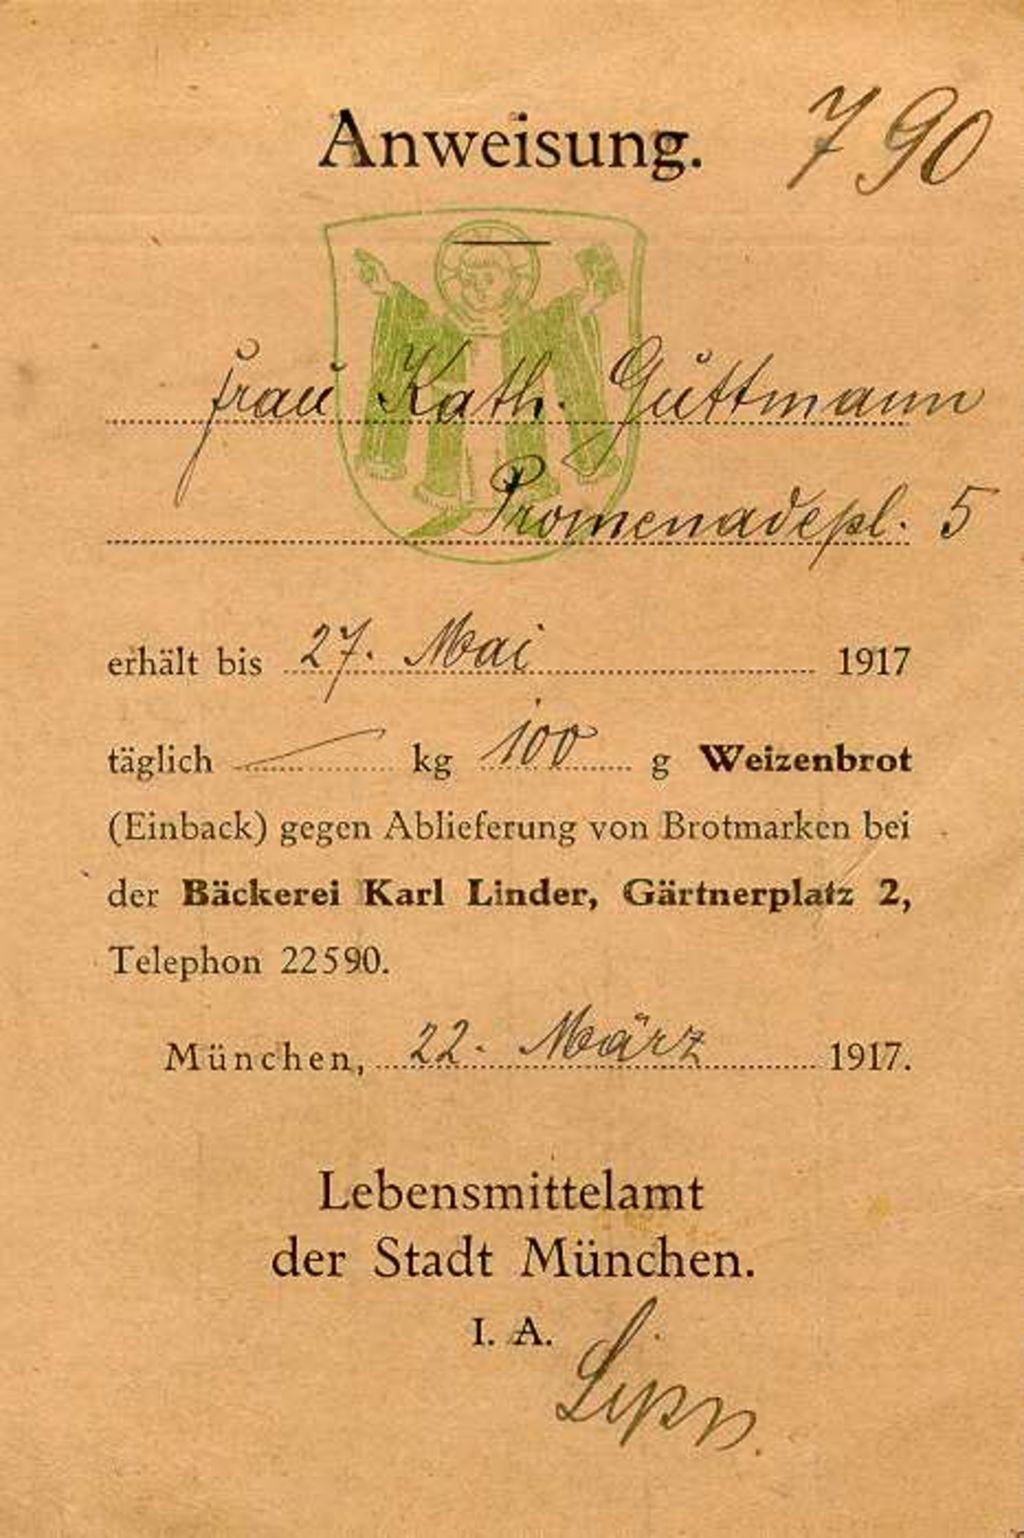 Anweisung. 790
Frau Kath. Guttmann
Promenadepl. 5
erhält bis 27. Mai 1917
täglich — kg 100 g Weizenbrot
(Einback) gegen Ablieferung von Brotmarken bei
der Bäckerei Karl Linder, Gärtnerplatz 2,
Telephon 22590.
München, 22. März 1917.
Lebensmittelamt
der Stadt München.
I. A.